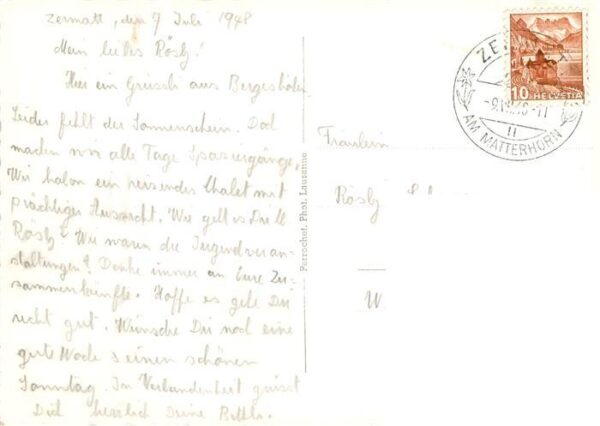 Zermatt, den 7 Juli 1948
Mein liebes Rösly!
Hier ein Grüssli aus Bergeshöhen
Leider fehlt der Sonnenschein. Doch
machen wir alle Tage Spaziergänge,
Wir haben ein reizendes Chalet mit
prächtiger Aussicht. Wie geht es Dir
Rösly? Wie waren die Jugendveran-
staltungen? Denke immer an Eure Zu-
sammenkünfte. Hoffe es gehe Dir
recht gut. Wünsche Dir noch eine
gute Woche & einen schönen
Sonntag. In Verbundenheit grüsst
Dich herzlich Deine
Perrochet, Phot. Lausanne
Fräulein
Rösly
W
10 HELVETIA
AM MATTERHORN